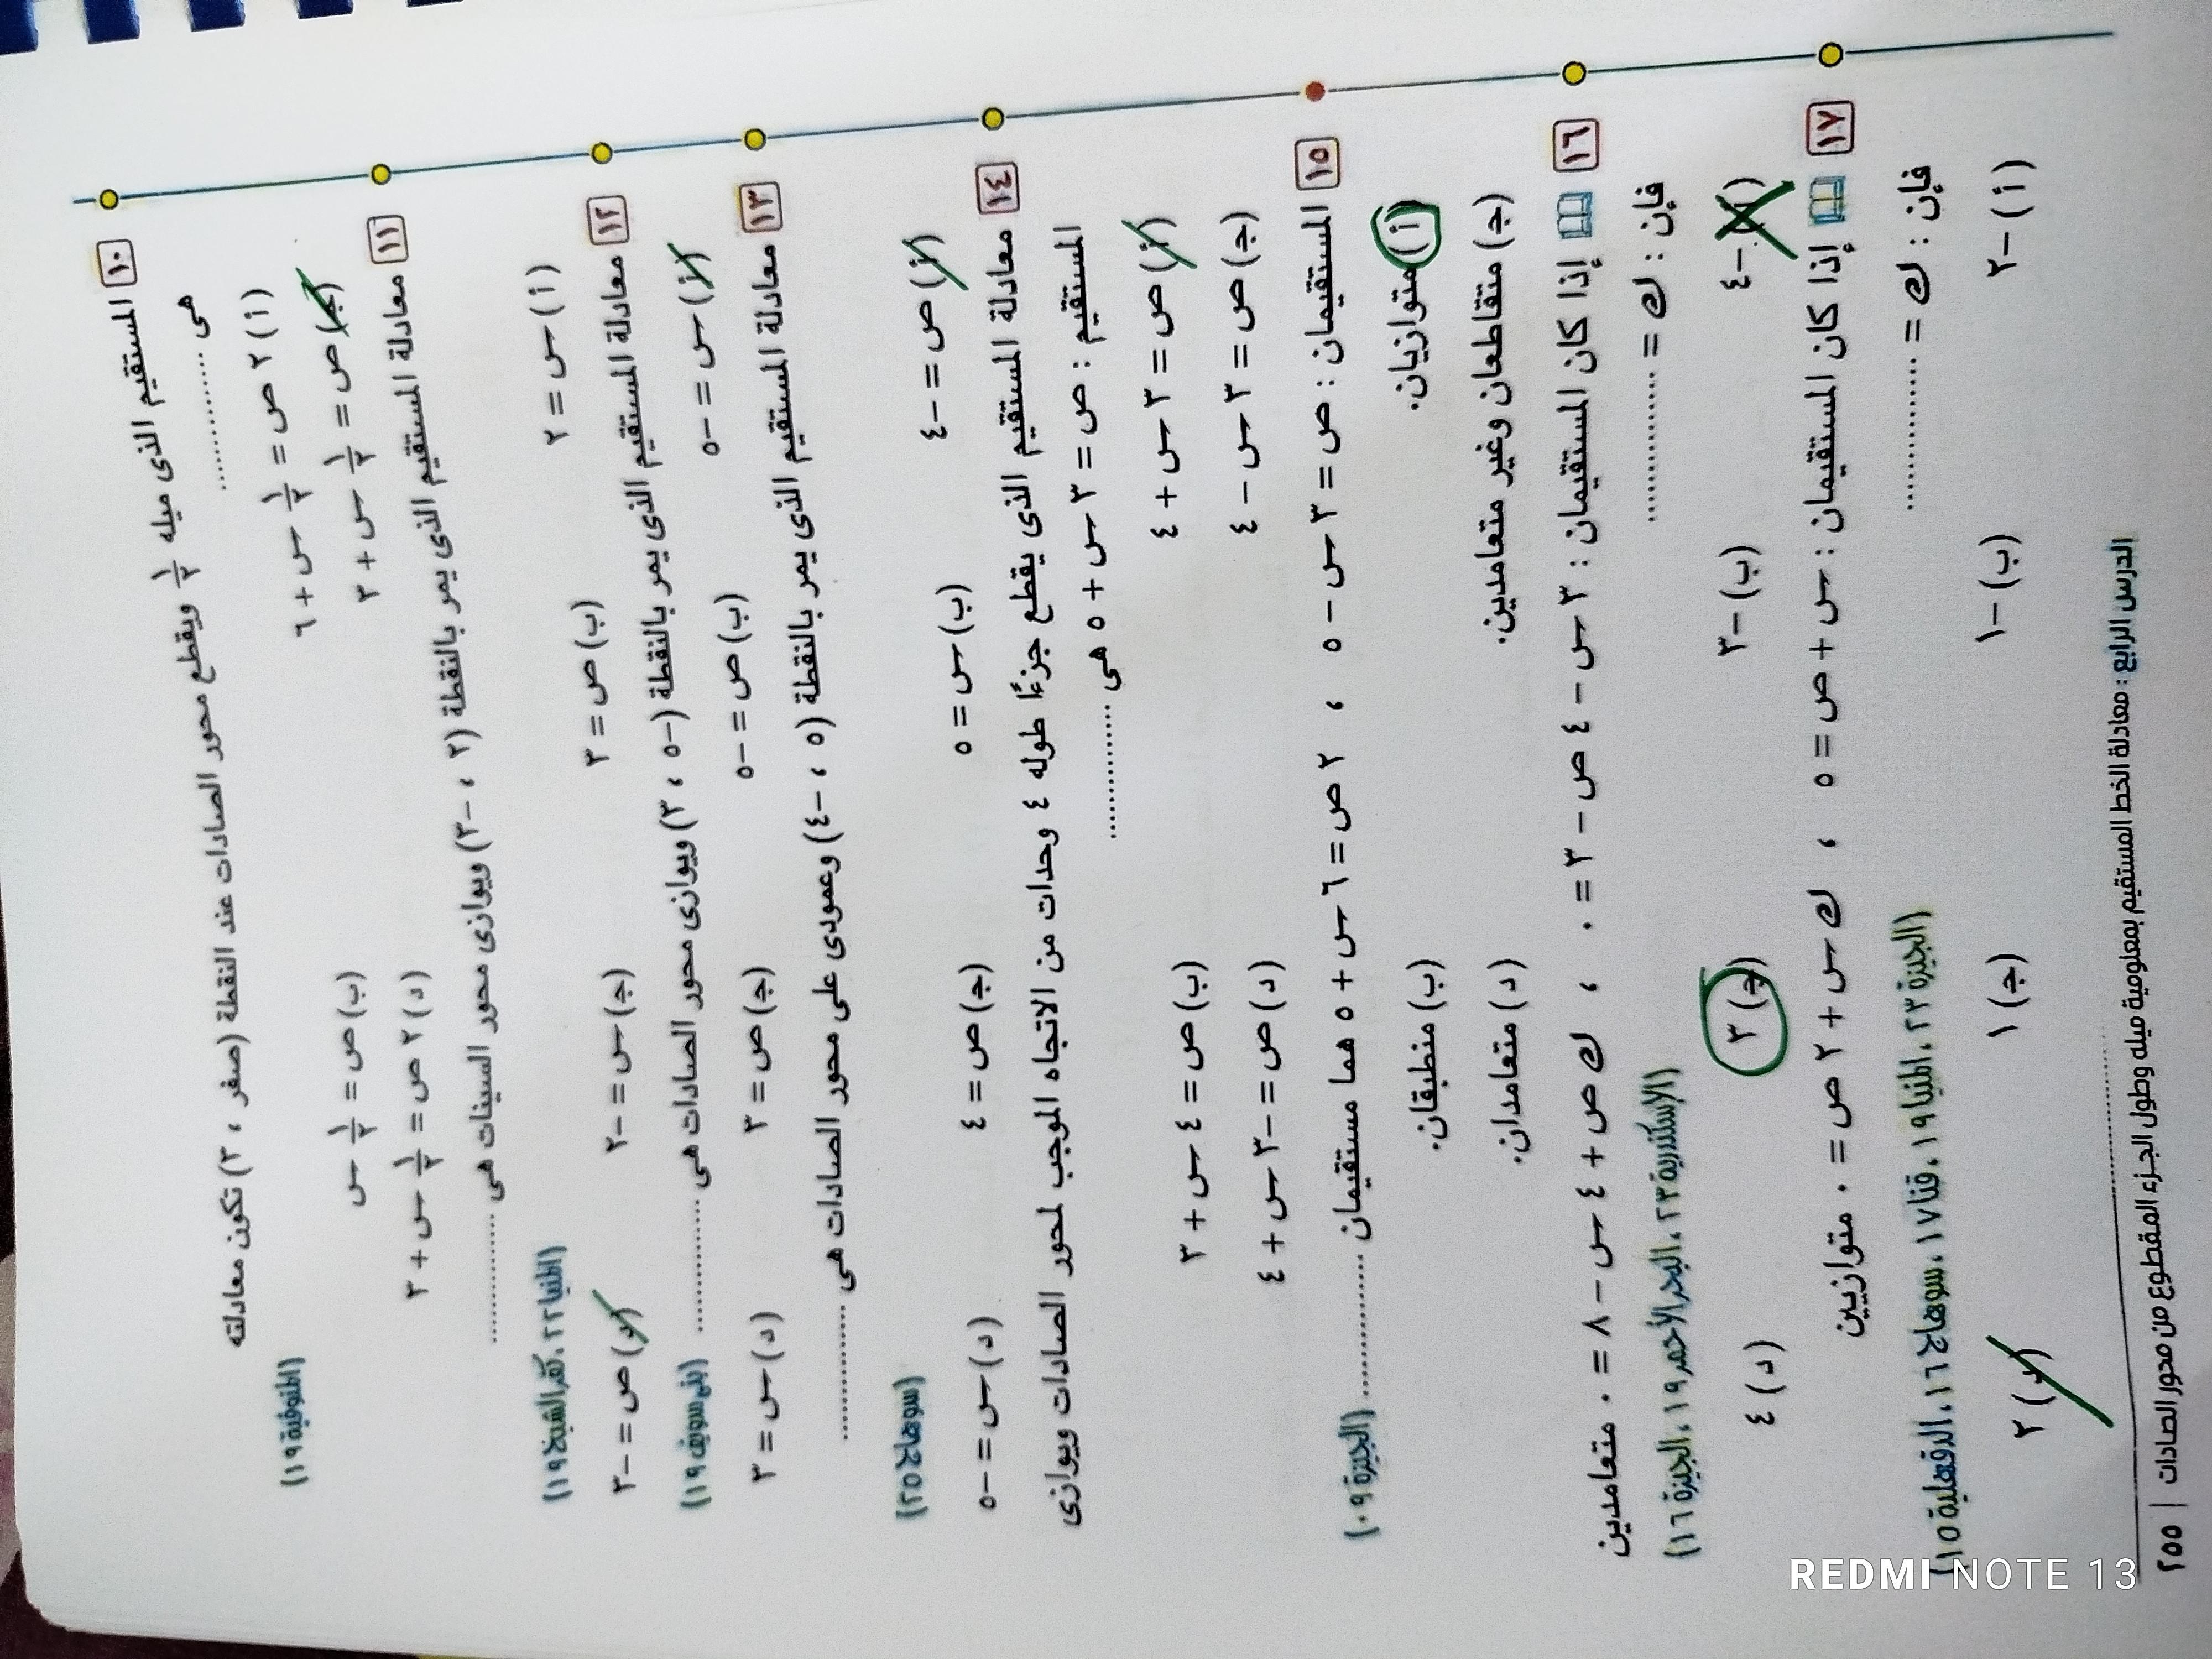 ١٠ المستقيم الذى ميله ١/٢ ويقطع محور الصادات عند النقطة (صفر ، ٣) تكون معادلته
هى ............ (المنوفية ١٩)
(أ) ٢ ص = ١/٢ س + ٦ (ب) ص = ١/٢ س
(جـ) ص = ١/٢ س + ٣ (د) ٢ ص = ١/٢ س + ٣
١١ معادلة المستقيم الذى يمر بالنقطة (٢ ، -٣) ويوازى محور السينات هى ............
(المنيا ٢٢ ، كفر الشيخ ١٩)
(أ) س = ٢ (ب) ص = ٣ (جـ) س = -٢ (د) ص = -٣
١٢ معادلة المستقيم الذى يمر بالنقطة (-٥ ، ٣) ويوازى محور الصادات هى ............ (بنى سويف ١٩)
(أ) س = -٥ (ب) ص = -٥ (جـ) ص = ٣ (د) س = ٣
١٣ معادلة المستقيم الذى يمر بالنقطة (٥ ، -٤) وعمودى على محور الصادات هى ............
(سوهاج ٢٥)
(أ) ص = -٤ (ب) س = ٥ (جـ) ص = ٤ (د) س = -٥
١٤ معادلة المستقيم الذى يقطع جزءًا طوله ٤ وحدات من الاتجاه الموجب لمحور الصادات ويوازى
المستقيم : ص = ٣ س + ٥ هى ............
(أ) ص = ٣ س + ٤ (ب) ص = ٤ س + ٣
(جـ) ص = ٣ س - ٤ (د) ص = -٣ س + ٤
١٥ المستقيمان : ص = ٣ س - ٥ ، ٢ ص = ٦ س + ٥ هما مستقيمان ............ (الجيزة ٠٩)
(أ) متوازيان. (ب) منطبقان.
(جـ) متقاطعان وغير متعامدين. (د) متعامدان.
١٦ إذا كان المستقيمان : ٣ س - ٤ ص - ٣ = ٠ ، ك ص + ٤ س - ٨ = ٠ متعامدين
فإن : ك = ............ (الإسكندرية ٢٣ ، البحر الأحمر ١٩ ، الجيزة ١٦)
(أ) -٤ (ب) -٣ (جـ) ٣ (د) ٤
١٧ إذا كان المستقيمان : س + ص = ٥ ، ك س + ٢ ص = ٠ متوازيين
فإن : ك = ............ (الجيزة ٢٣ ، المنيا ١٩ ، قنا ١٧ ، سوهاج ١٦ ، الدقهلية ١٥)
(أ) -٢ (ب) -١ (جـ) ١ (د) ٢
الدرس الرابع : معادلة الخط المستقيم بمعلومية ميله وطول الجزء المقطوع من محور الصادات | ٢٥٥
REDMI NOTE 13